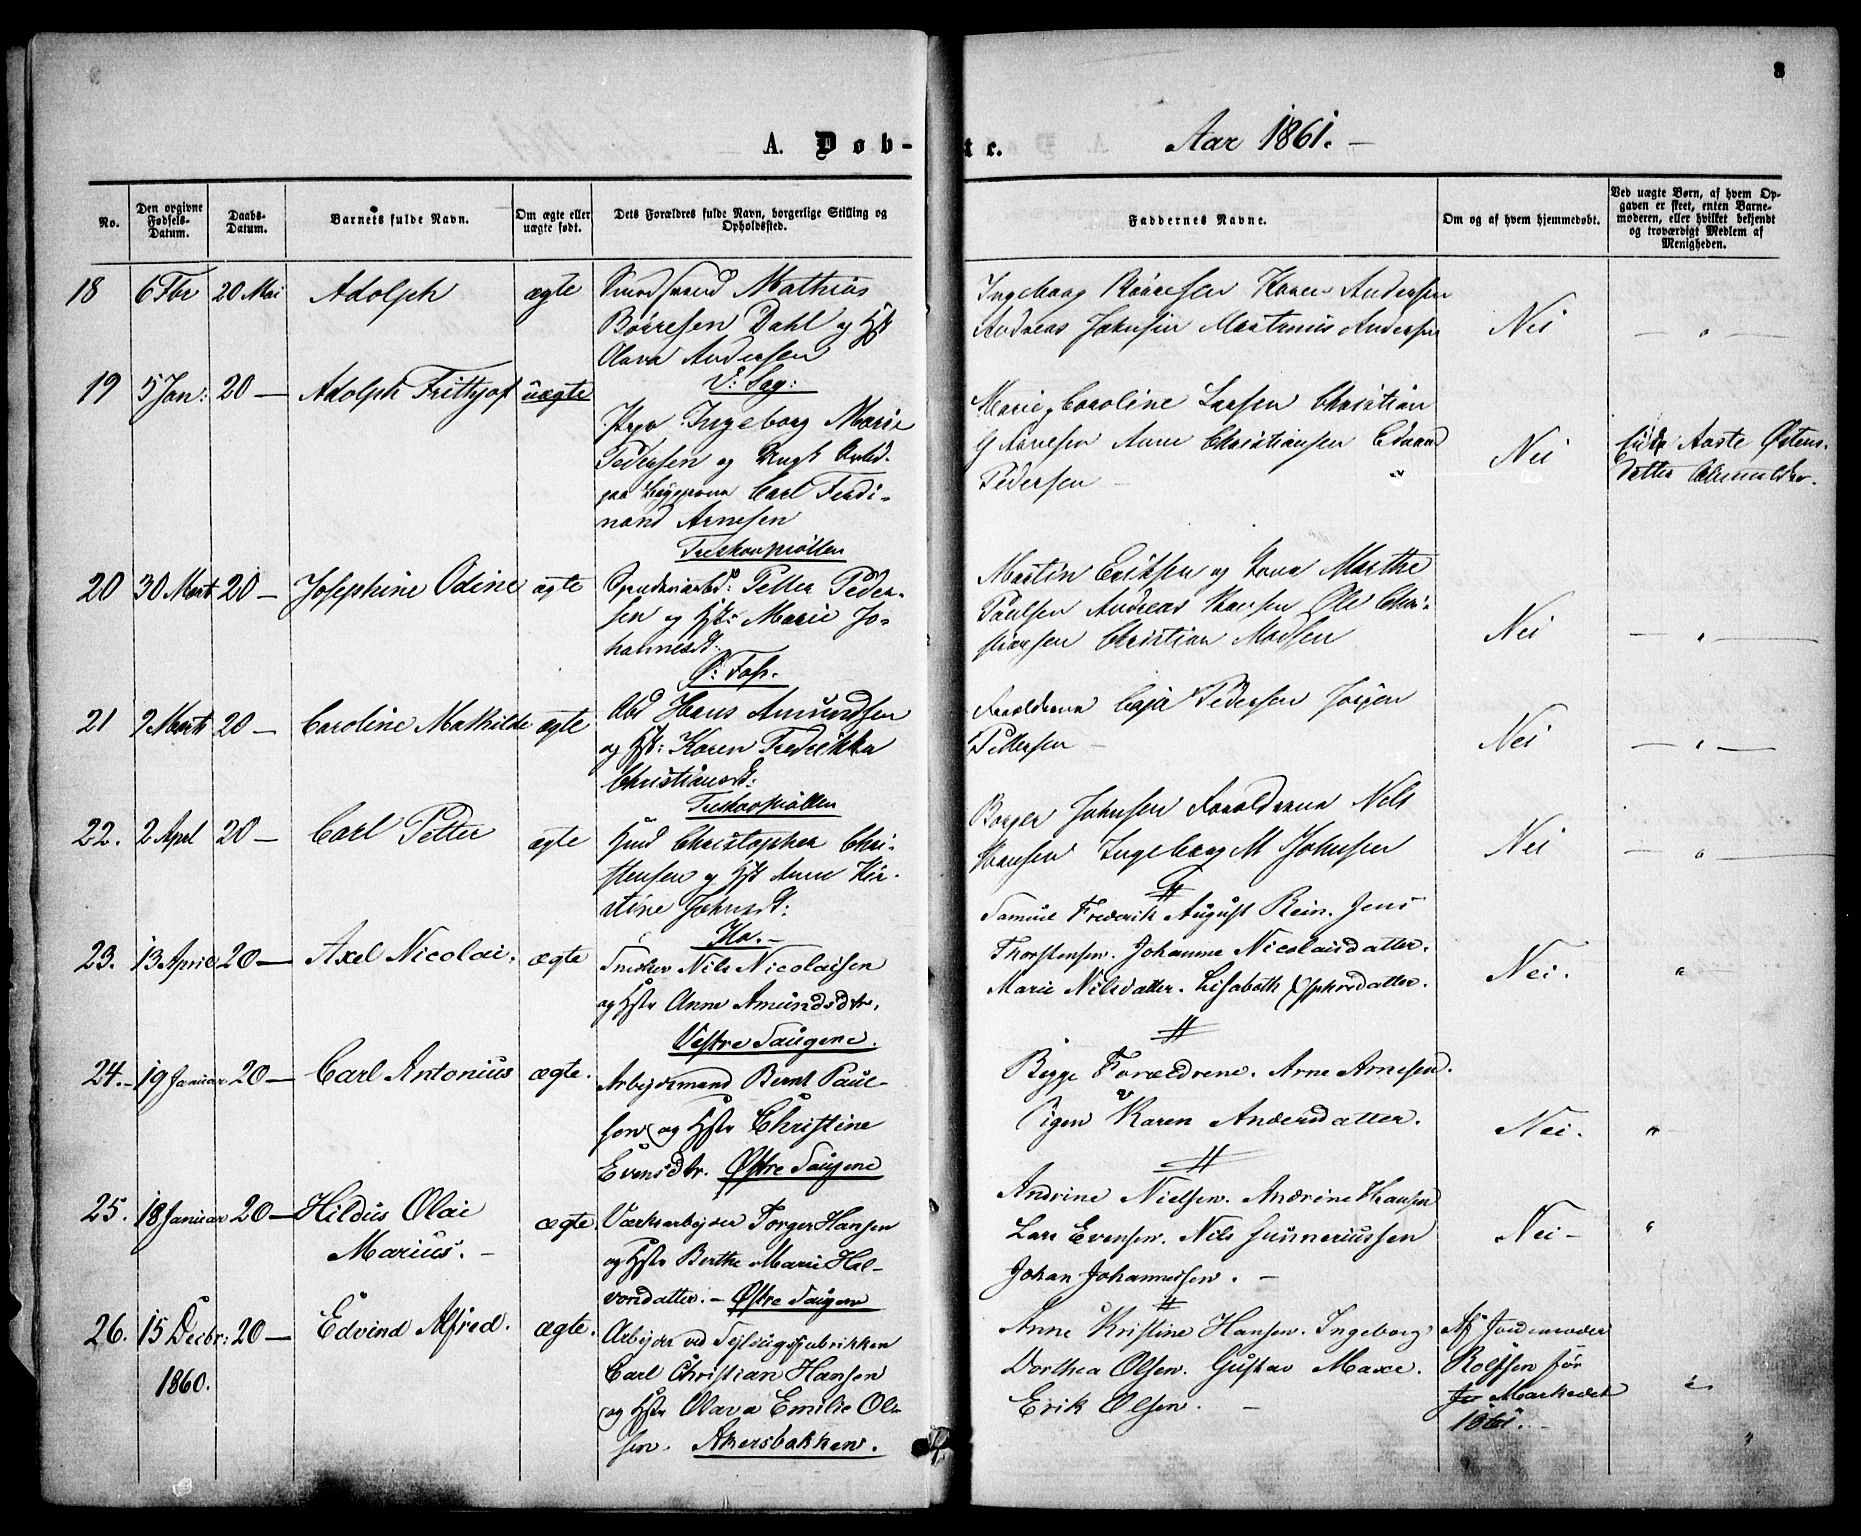 8
A. Døb-te. Aar 1861. —
No.
Den opgivne Fødsels-Datum.
Daabs-Datum.
Barnets fulde Navn.
Om ægte eller uægte født.
Dets Forældres fulde Navn, borgerlige Stilling og Opholdssted.
Faddernes Navne.
Om og af hvem hjemmedøbt.
Ved uægte Børn, af hvem Op-
gaven er skeet, enten Barne-
moderen, eller hvilket bekjendt
og troværdigt Medlem af
Menigheden.
18 6 Fbr 20 Mai Adolph ægte
Mathias
Børresen Dahl og Hst
Olava Andersen
V: Sag:
Ingeborg Børresen Karen Andersen
Andreas Johnsen Martinus Andersen
Nei — " —
19 5 Jan: 20 — Adolph Frithjof uægte
Pige Ingeborg Marie
Pedersen og Ungk
paa Carl Ferdi-
nand Arnesen
Treskowmøllen
Marie, Caroline Larsen Christian
G Arnesen Anne Christiansen Edvard
Pedersen —
Nei
Aaste Østens-
datter
20 30 Marts 20 — Josephine Odine ægte
Petter Peder-
sen og Hst: Marie Jo-
hannesdt:
Ø: Fos.
Martin Eriksen og Kone Marthe
Paulsen Andreas Hansen Ole Chri-
stiansen Christian Madsen
Nei — " —
21 9 Marts 20 — Caroline Mathilde ægte
Abd Hans Amundsen
og Hst: Karen Fredrikke
Christiansdt:
Treskowmøllen
Forældrene Caja Pedersen Jörgen
Pettersen —
Nei — " —
22. 2 Apl 20 — Carl Petter ægte
Hmd Christopher Chri-
stensen og Hst Anne Kir-
stine Johnsdt:
Mo. —
Borger Johnsen Forældrene Nels
Hansen Ingeborg M Johnsen
Nei — " —
23. 13 April 20 — Axel Nicolai. ægte
Snedker Nils Nicolaisen
og Hstr Anne Amundsdtr.
Vestre Saugene.
Samuel Frederik August Rein. Jens
Thorstensen. Johanne Nicolaisdatter.
Marie Nilsdatter. Lisabeth
Nei. " —
24. — 19 Januar 20 — Carl Antonius ægte.
Arbejdsmand Bernt Paul-
sen og Hstr Christine
Evensdtr. Østre Saugene
Begge Forældrene. Arne Arnesen.
Pigen Karen Andersdatter.
Nei. "
25. 18 Januar 20 — Hildus Olai
Marius. — ægte.
Værksarbejder Torger Hansen
og Hstr Berthe Marie Hal-
vorsdatter. — Østre Saugene
Andrine Nielsen. Andrine Hansen
Lars Evensen. Nils Gunneriussen
Johan Johannessen. —
Nei — "
26. 15 Decbr: 20 — Edvind Alfred. ægte.
1860.
Arbejder ved Sejldugsfabrikken
Carl Christian Hansen
og Hstr Olava Emilie Ol-
sen. Akersbakken.
Anne Kristine Hansen. Ingeborg
Dorthea Olsen. Gustav Maxe.
Erik Olsen. —
Af Jordemoder
Rolfsen før
for Markedet
1861. —
"